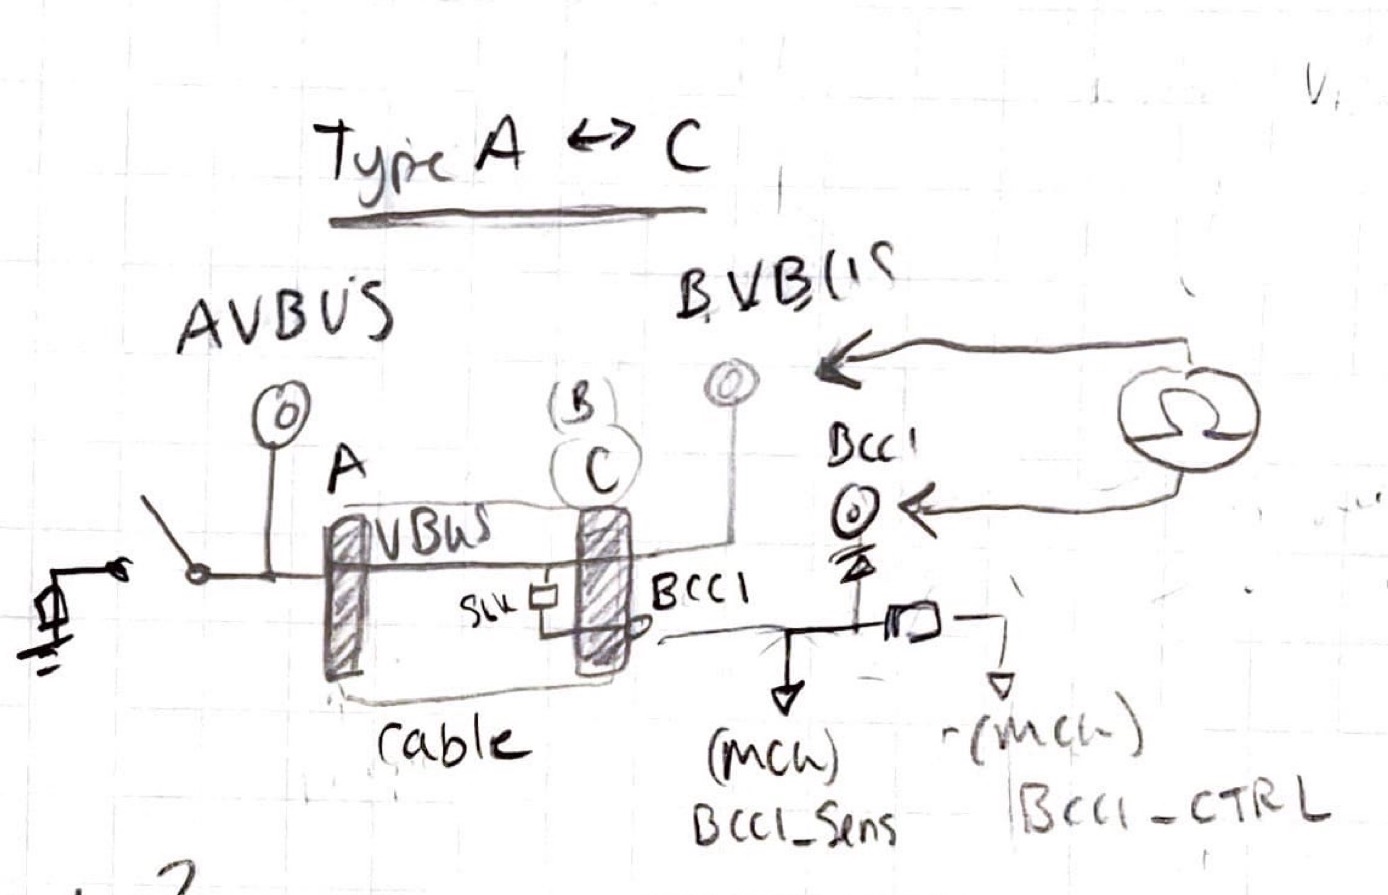 V.
Type A ↔ C
AVBUS
BVBUS
(B)
A
C
BCC1
Ω
VBUS
BCC1
cable
(MCU)
BCC1_Sens
-(MCU)
BCC1_CTRL
?